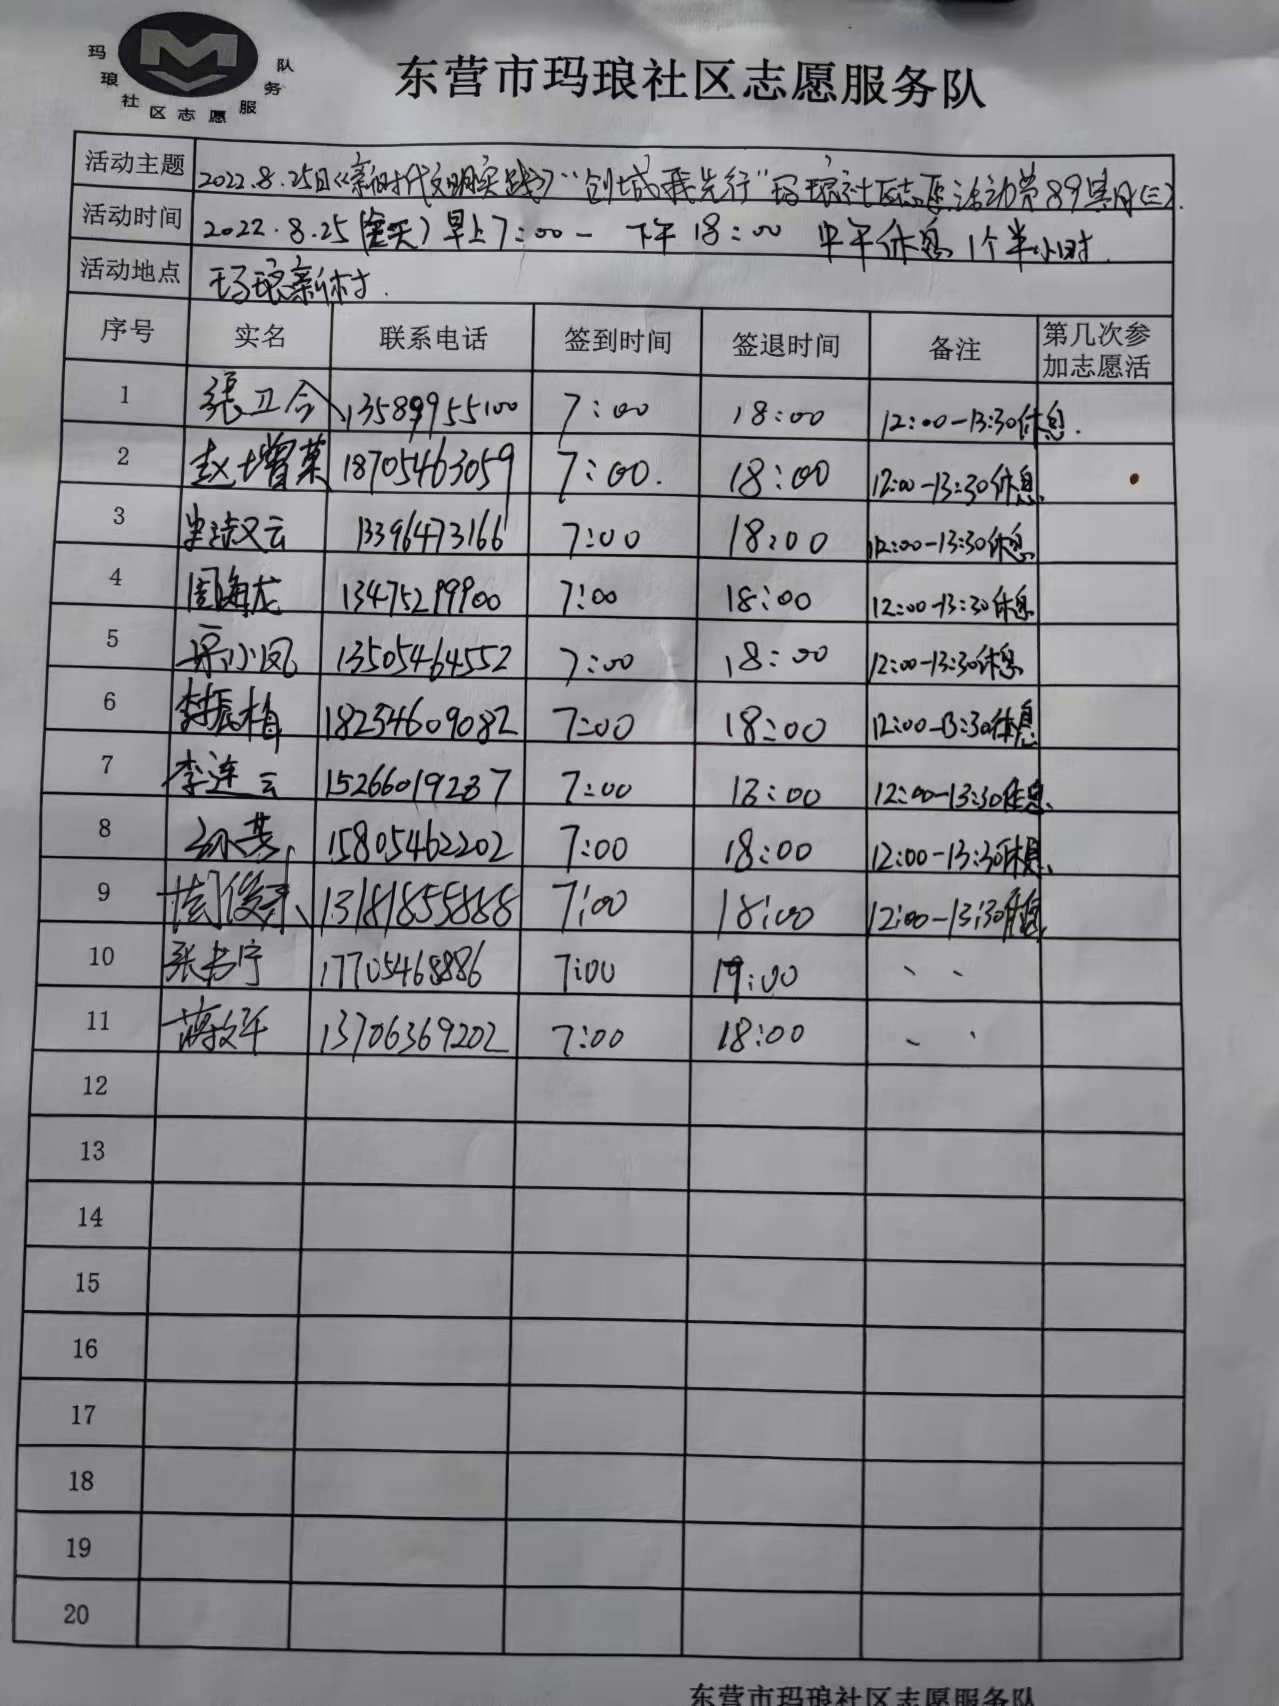 玛琅社区志愿服务队
东营市玛琅社区志愿服务队
活动主题 2022.8.25日《新时代文明实践》“创城我先行”玛琅社区志愿活动第89集(三).
活动时间 2022.8.25(全天)早上7:00- 下午18:00 中午休息1个半小时.
活动地点 玛琅新村.
序号 实名 联系电话 签到时间 签退时间 备注 第几次参
加志愿活
1 张卫令 13589955100 7:00 18:00 12:00-13:30休息.
2 赵增菜 18705463059 7:00. 18:00 12:00-13:30休息.
3 云 13396473166 7:00 18:00 12:00-13:30休息
4 周海龙 13475299900 7:00 18:00 12:00-13:30休息
5 小凤 13505464552 7:00 18:00 12:00-13:30休息
6 李振楠 18254609082 7:00 18:00 12:00-13:30休息
7 李连云 15266019237 7:00 18:00 12:00-13:30休息.
8 孙英 15805462202 7:00 18:00 12:00-13:30休息.
9 俊 13181855888 7:00 18:00 12:00-13:30休息
10 张书宁 17705468886 7:00 19:00 、、
11 蒋文军 13706369202 7:00 18:00 、、
12
13
14
15
16
17
18
19
20
东营市玛琅社区志愿服务队